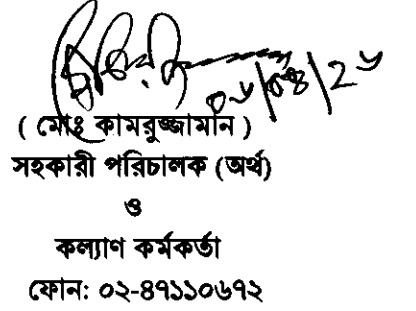 ০৬/০৪/২৬
( মোঃ কামরুজ্জামান )
সহকারী পরিচালক (অর্থ)
ও
কল্যাণ কর্মকর্তা
ফোন: ০২-৪৭১১০৬৭২